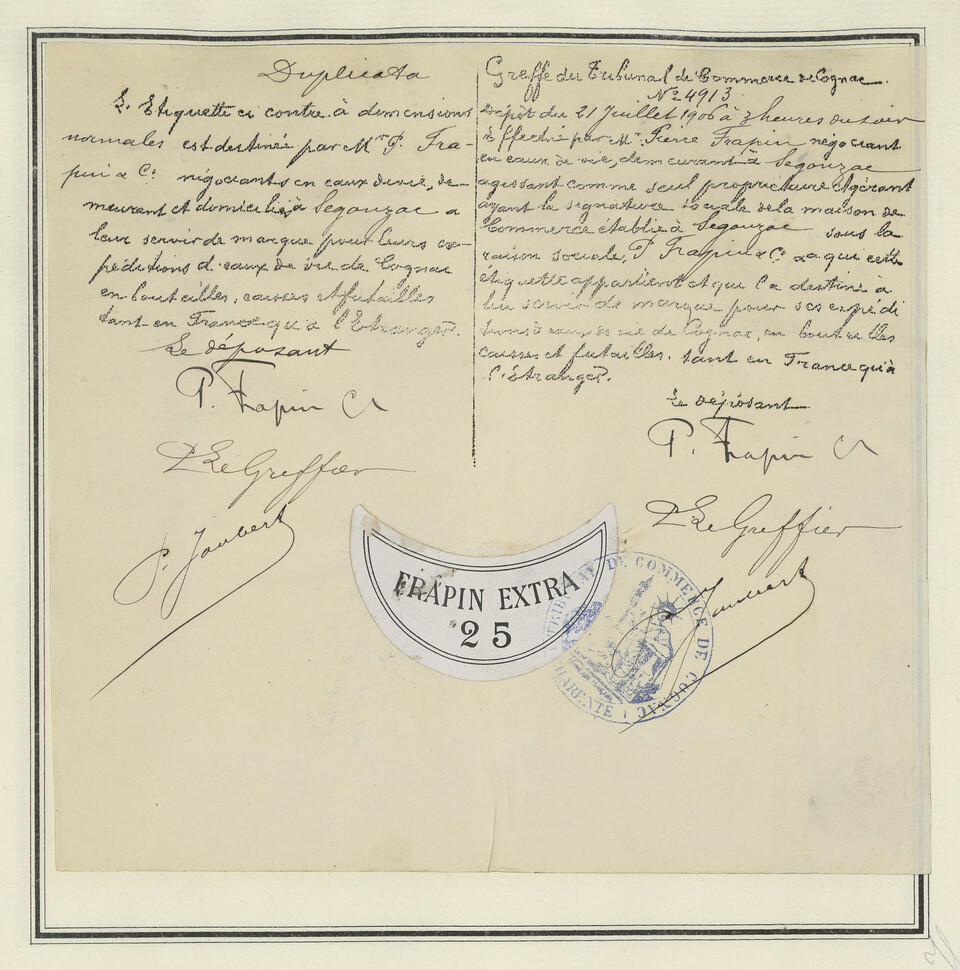 Duplicata
L'Etiquette ci contre à dimensions
normales est destinée par Mr P. Fra-
pin & Cie négociants en eaux de vie, de-
meurant et domiciliés à Segonzac a
leur servir de marque pour leurs ex-
péditions d'eaux de vie de Cognac
en bouteilles, caisses et futailles
tant en France qu'à l'Etranger.
Le déposant
P. Frapin Cie
Le Greffier
P. Joubert
Greffe du Tribunal de Commerce de Cognac.
No 4913.
Dépôt du 21 Juillet 1906 à 3 heures du soir
Effectué par Mr. Pierre Frapin négociant
en eaux de vie, demeurant à Segonzac
agissant comme seul propriétaire et gérant
ayant la signature sociale de la maison de
Commerce établie à Segonzac sous la
raison sociale, P. Frapin & Cie a qui cette
étiquette appartient et qui l'a destinée à
lui servir de marque pour ses expédi
tions d'eaux de vie de Cognac, en bouteilles
caisses et futailles, tant en France qu'à
l'Étranger.
Le déposant
P. Frapin Cie
Le Greffier
Joubert
FRAPIN EXTRA
25
TRIBUNAL DE COMMERCE DE COGNAC
CHARENTE